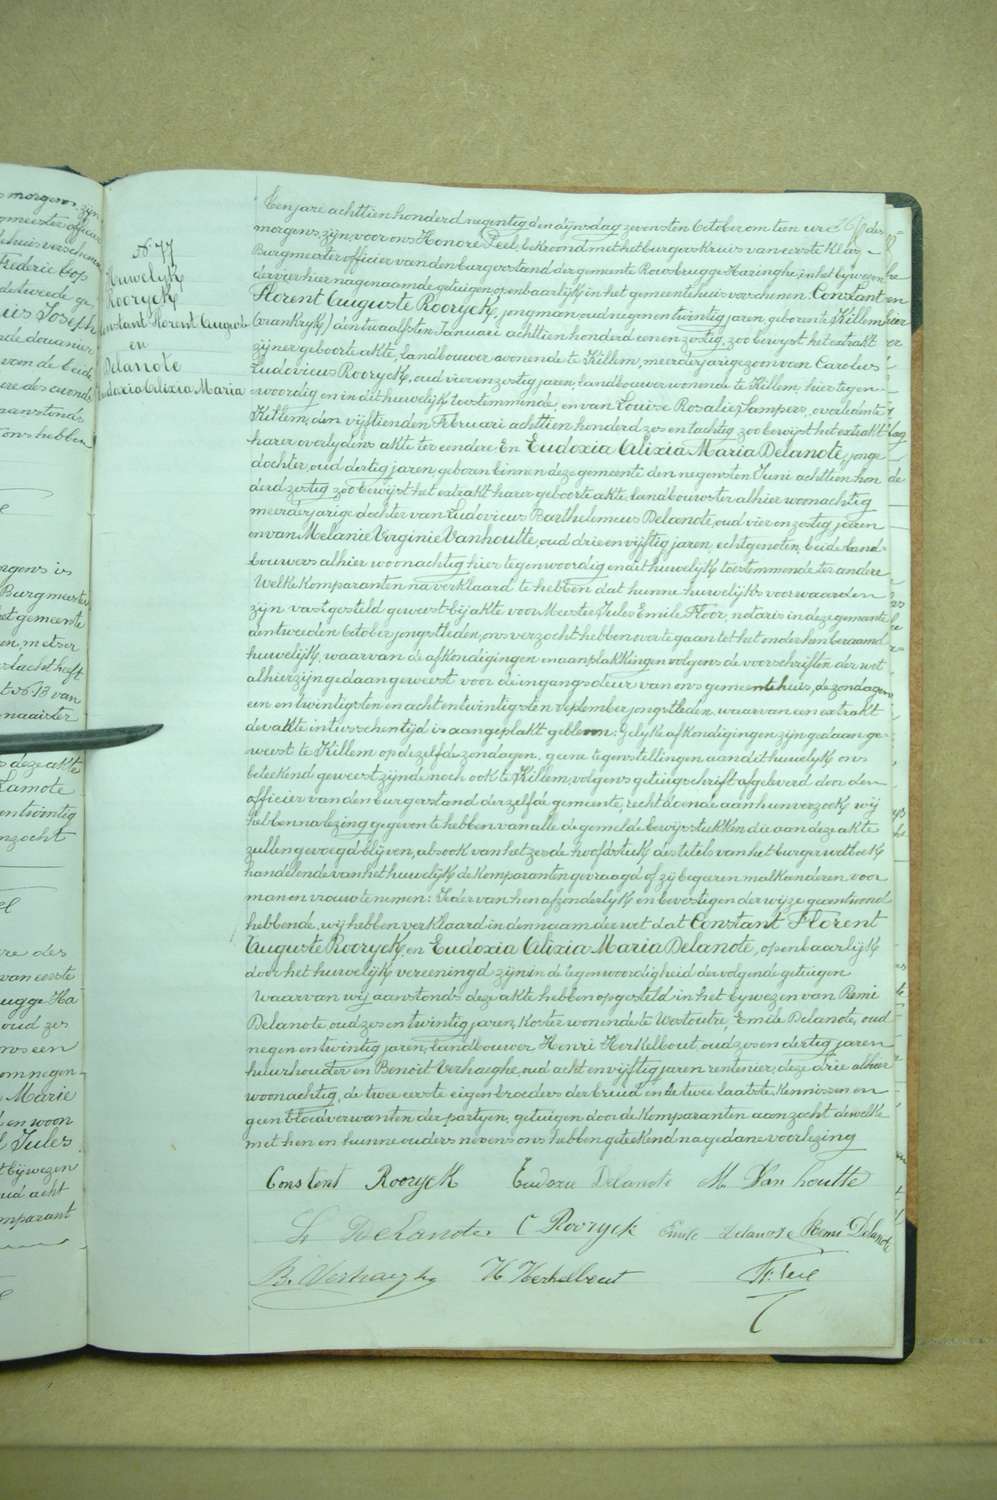 N° 77
Huwelijk
Rooryck
Constant Florent Auguste
en
Delanote
Eudoxia Alixia Maria
Ten jare achttien honderd negentig den dijnsdag zevensten October om tien ure des
morgens, zijn voor ons Honoré Feel, bekroond met het burgerskruis van eerste klas,
Burgmeester officier van den burgerstand der gemeente Rousbrugge-Haringhe, in het bijwezen
der vier hier nagenaamde getuigen openbaarlijk in het gemeentehuis verschenen Constant
Florent Auguste Rooryck, jongman oud negen en twintig jaren, geboren te Killem
(Vrankryk) den twaalfsten Januari achttien honderd een en zestig, zoo bewijst het extrakt
zijner geboorte akte, landbouwer wonende te Killem, meerderjarige zoon van Carolus
Ludovicus Rooryck, oud vier en zestig jaren, landbouwer wonende te Killem hier tegen-
woordig en in dit huwelijk toestemmende, en van Louise Rosalie Jampers, overleden te
Killem, den vijftienden Februari achttien honderd zes en tachtig zoo bewijst het extrakt
harer overlijdens akte ter eendere. En Eudoxia Alixia Maria Delanote, jonge
dochter, oud dertig jaren geboren binnen deze gemeente den negensten Juni achttien hon
derd zestig zoo bewijst het extrakt harer geboorte akte, landbouwster alhier woonachtig
meerderjarige dochter van Ludovicus Barthelemeus Delanote, oud vier en zestig jaren
en van Melanie Virginie Vanhoutte, oud drie en vijftig jaren, echtgenoten, beide land-
bouwers alhier woonachtig hier tegenwoordig en in dit huwelijk toestemmende ter andere
Welke komparanten na verklaard te hebben dat hunne huwelijks voorwaarden
zijn vastgesteld geweest bij akte voor Meester Jules Emile Floor, notaris in deze gemeente
den tweeden October jongstleden, ons verzocht hebben over te gaan tot het onder hen beraamd
huwelijk, waarvan de afkondigingen en aanplakkingen volgens de voorschriften der wet
alhier zijn gedaan geweest voor de ingangsdeur van ons gemeentehuis, de zondagen
een en twintigsten en acht en twintigsten September jongstleden, waarvan een extrakt
der akte in tusschentijd is aangeplakt gebleven. Gelijke afkondigingen zijn gedaan ge-
weest te Killem op dezelfde zondagen, geene tegenstellingen aan dit huwelijk ons
beteekend geweest zijnde noch ook te Killem, volgens getuigschrift afgeleverd door den
officier van den burgerstand derzelfde gemeente, recht doende aan hun verzoek wij
hebben na lezing gegeven te hebben van alle de gemelde bewijsstukken die aan deze akte
zullen gevoegd blijven, alsook van het zesde hoofdstuk des titels van het burger wetboek
handelende van het huwelijk de komparanten gevraagd of zij begeeren malkanderen voor
man en vrouw te nemen: Ieder van hen afzonderlijk en bevestigen der wijze geantwoord
hebbende, wij hebben verklaard in den naam der wet dat Constant Florent
Auguste Rooryck, en Eudoxia Alixia Maria Delanote, openbaarlijk
door het huwelijk vereenigd zijn in de tegenwoordigheid der volgende getuigen
Waarvan wij aanstonds deze akte hebben opgesteld in het bijwezen van Remi
Delanote, oud zes en twintig jaren, koster wonende te Westoutre, Emile Delanote, oud
negen en twintig jaren, landbouwer Henri Herkelbout, oud zes en dertig jaren
huurhouder en Benoit Verhaeghe, oud acht en vijftig jaren rentenier, deze drie alhier
woonachtig, de twee eerste eigen broeders der bruid en de twee laatste kennissen en
geen bloedverwanten der partijen, getuigen door de komparanten aanzocht dewelke
met hen en hunne ouders nevens ons hebben geteekend na gedane voorlezing
Constent Rooryck Eudoxie Delanote M Vanhoutte
L Delanote C Rooryck Emile Delanote Remi Delanote
B. Verhaeghe H Herkelbout H. Feel